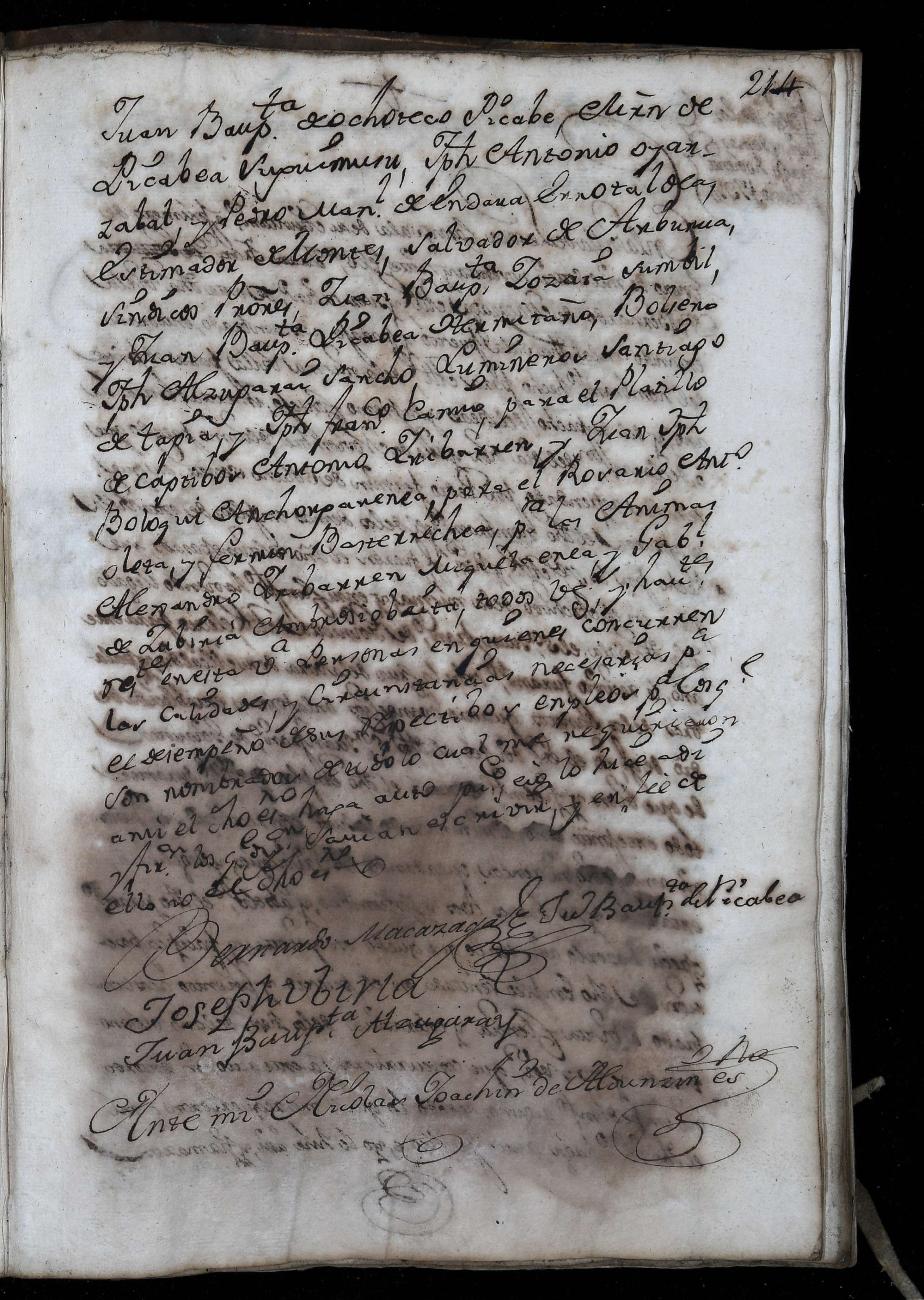 214
Juan Baupta. de ochoteco Picabe, Min de
Picabea Supicimuru, Jph Antonio oyar-
zabal, y Pedro Manl. de Endara Ernotaldeas,
Estimador de Montes, Salvador de Anburua,
Sindicos Prōnes, Juan Baupta. Zozaia Sumbil,
y Juan Baupta. Picabea Hermitaño, Bolsero
Jph Alzuparai Sancho, Lumineros Santiago
de tapia, y Jph franco. Camio, para el Platillo
de Captibos Antonio Iribarren, y Juan Jph
Boloqui Anchorparenea, para el Rosario Anto.
oleta, y Fermin Basterrechea, pa. las Animas
Alexandro Iribarren Miquelaenea y Gabl.
de Zubiria todos y havtes
restes en esta va. Personas en quienes concurren
las Calidades, y Circunstancias necesarias pa.
el desempeño de sus respectibos empleos
son nombrados de todo lo cual me requirieron
ami el dho esno haga auto puco. eió lo hice asi
y firn. los qe. digen. Savian escrivir, y en fee de
ello io el dho esno
Bernardo Macazaga Jun Baupta. de Picabea
Joseph ubiria
Juan Baupta Alzugaray
Ante mi Nicolas Joachin de Aldunzin esno